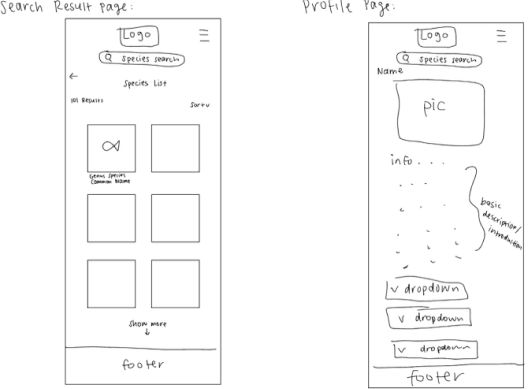 Search Result page:
Logo
species search
←
Species List
101 Results
Sort v
Genus species
Common Name
Show more
↓
footer
Profile Page:
Logo
species search
Name
pic
info . . .
basic
description/
introduction
v dropdown
v dropdown
v dropdown
footer